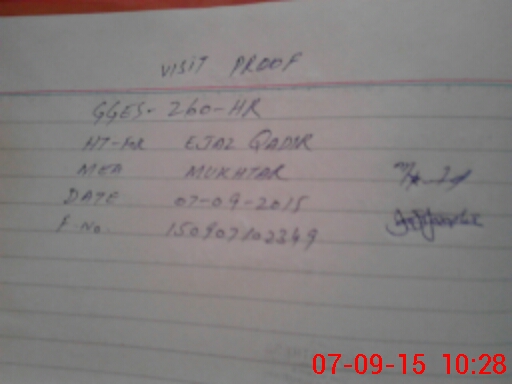 VISIT PROOF
GGES- 260-HR
HT-MR EJAZ QADIR
MEA MUKHTAR
DATE 07-09-2015
F-No. 150907102349
07-09-15 10:28